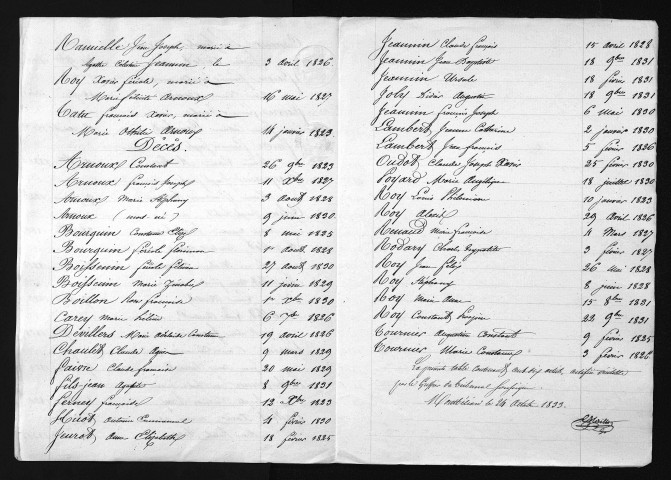 Mamielle Jean Joseph, marié à
Agathe Célestine Jeannin, le 3 avril 1826
Roy Xavier Féréole, marié à
Marie Félicité Arnoux 16 mai 1827
Tatu françois Xavier, marié à
Marie Othilie Arnoux 14 janvier 1823
Décès.
Arnoux Constant 26 9bre 1823
Arnoux françois Joseph 11 Xbre 1827
Arnoux Marie Stéphany 3 août 1828
Arnoux (mort-né) 9 juin 1830
Bourquin Constance Elize 8 mai 1825
Bourquin féréole 1er août 1828
Boissenin féréole 27 août 1830
Boissenin Marie 11 juin 1829
Boillon 1er Xbre 1830
Carey Marie 6 7bre 1826
Devillers Marie Adélaïde 19 avril 1826
Choulet Claude 9 mars 1829
Faivre Claude françois 20 mai 1829
Fils-jean 8 9bre 1831
Ferney françoise 12 Xbre 1823
Huot Antoine Emmanuel 4 février 1830
Jeurot Anne Elizabeth 18 février 1825
Jeannin Claude françois 15 avril 1828
Jeannin Jean Baptiste 18 9bre 1831
Jeannin Ursule 18 février 1831
Joly Didier Augustin 18 9bre 1831
Jeannin françois Joseph 6 mai 1830
Lambert Jeanne Catherine 2 janvier 1830
Lambert Jean françois 5 février 1826
Oudot Claude Joseph Xavier 25 février 1830
Poyard Marie Angélique 18 juillet 1830
Roy Louis Philemon 10 janvier 1823
Roy Alexis 29 avril 1826
Renaud Marie françoise 4 Mars 1827
Rodary Charles 3 février 1827
Roy Jean félix 26 mai 1828
Roy Stéphany 8 juin 1828
Roy Marie Anne 15 8bre 1831
Roy Constant 22 9bre 1831
Tournier Augustin Constant 9 février 1825
Tournier Marie Constance 3 février 1826
La présente table certifiée véritable
par le Greffier du tribunal
Montbéliard le 24 octobre 1833.